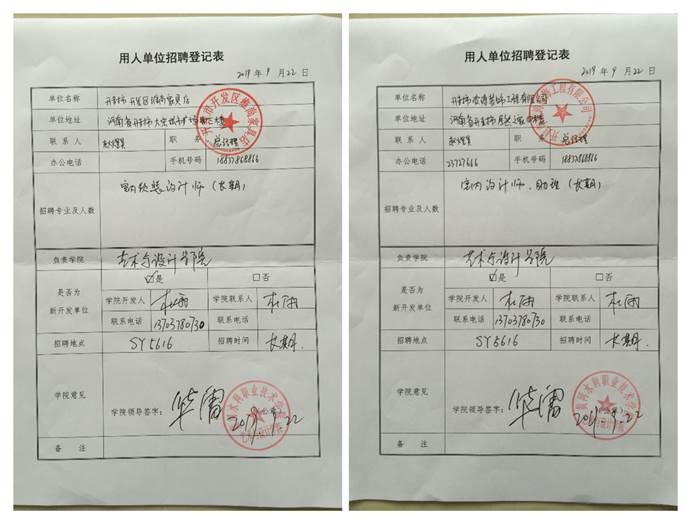 用人单位招聘登记表
2019 年 9 月 22 日
单位名称
单位地址 河南省开封市
联系人 职务 总经理
办公电话 手机号码 18837868866
招聘专业及人数 室内软装设计师（长期）
负责学院 艺术与设计学院
是否为新开发单位 ☑是 □否
学院开发人 杜雨 学院联系人 杜雨
联系电话 13703780730 联系电话
招聘地点 SY5616 招聘时间 长期
学院意见
学院领导签字：华雷
2019.9.22
备 注
用人单位招聘登记表
2019 年 9 月 22 日
单位名称
单位地址 河南省开封市
联系人 职务 总经理
办公电话 23727666 手机号码 18837868866
招聘专业及人数 室内设计师、助理（长期）
负责学院 艺术与设计学院
是否为新开发单位 ☑是 □否
学院开发人 杜雨 学院联系人 杜雨
联系电话 13703780730 联系电话
招聘地点 SY5616 招聘时间 长期
学院意见
学院领导签字：华雷
2019.9.22
备 注